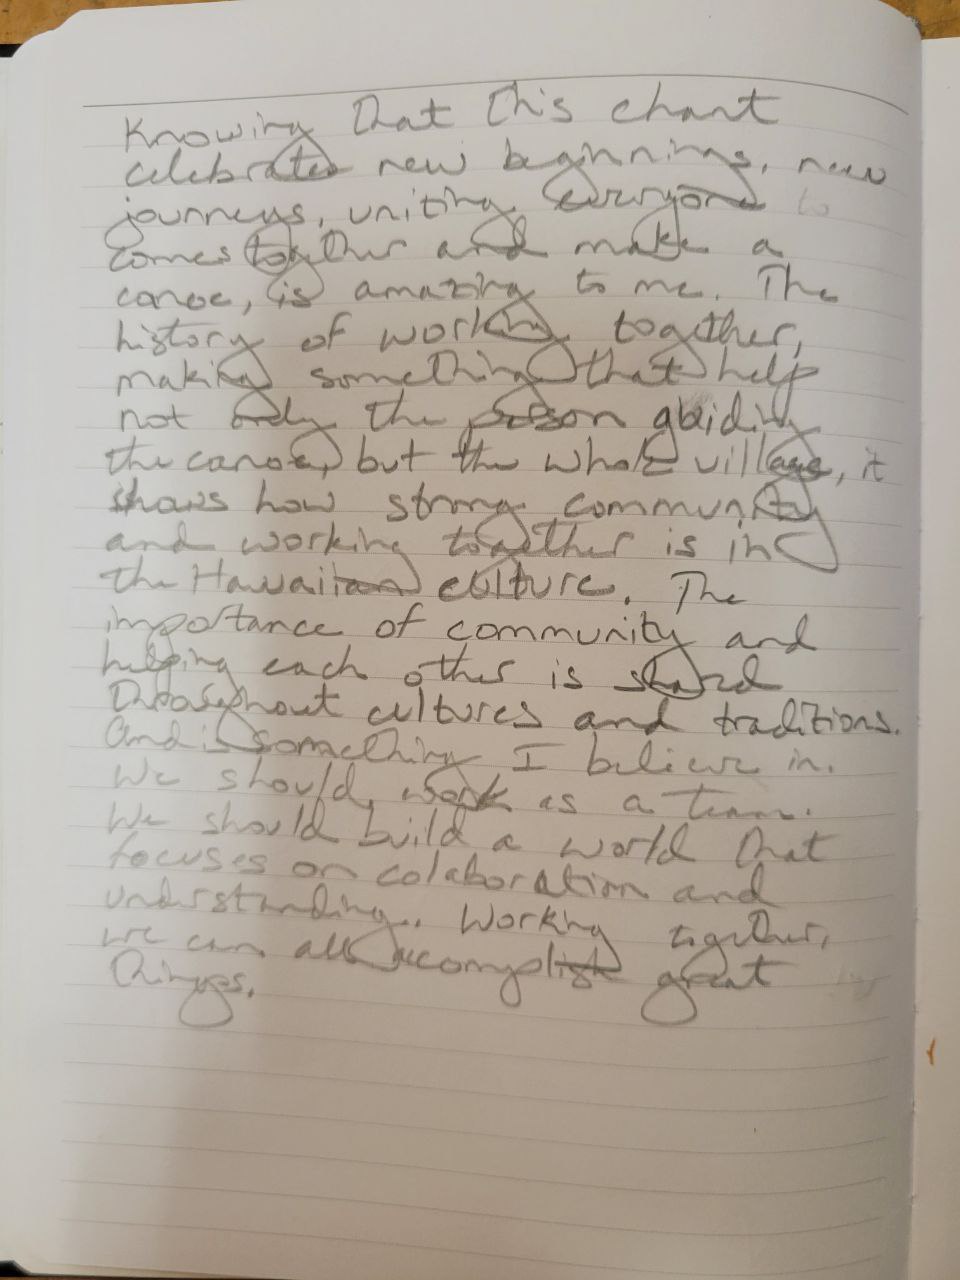 Knowing that this chant
celebrates new beginnings, new
journeys, uniting everyone to
comes together and make a
canoe, is amazing to me. The
history of working together,
making something that help
not only the person guiding
the canoe, but the whole village, it
shows how strong community
and working together is in
the Hawaiian culture. The
importance of community and
helping each other is shared
throughout cultures and traditions.
And is something I believe in.
We should work as a team.
We should build a world that
focuses on colaboration and
understanding. Working together,
we can all accomplish great
things.